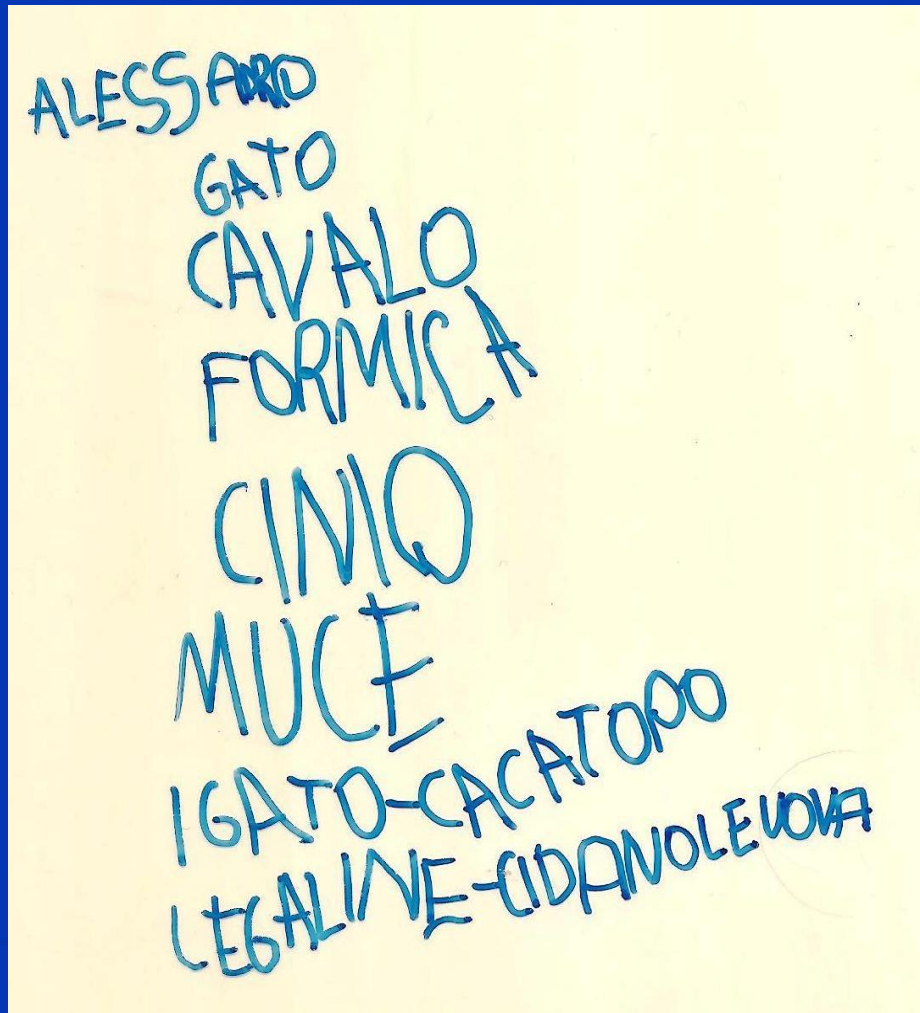 ALESSADRO
GATO
CAVALO
FORMICA
CINIO
MUCE
IGATO-CACATOPO
LEGALINE-CIDANOLEUOVA